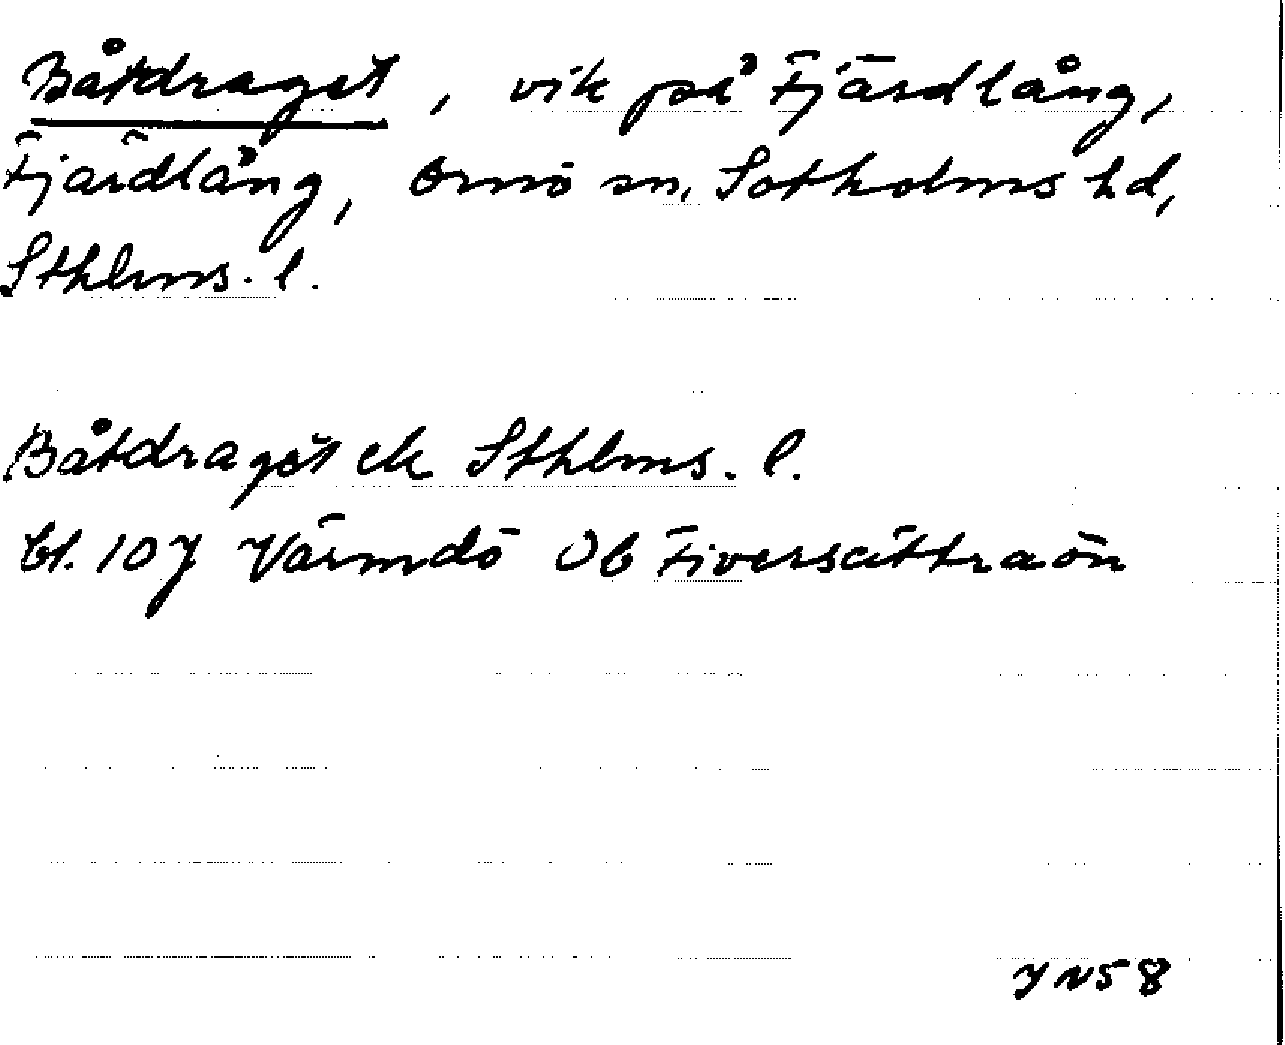 Båtdraget, vik på Fjärdlång,
Fjärdlång, Ornö sn, Sotholms hd,
Sthlms. l.
Båtdraget ek Sthlms. l.
bl. 107 Värmdö Ob Fiversättraön
YN58